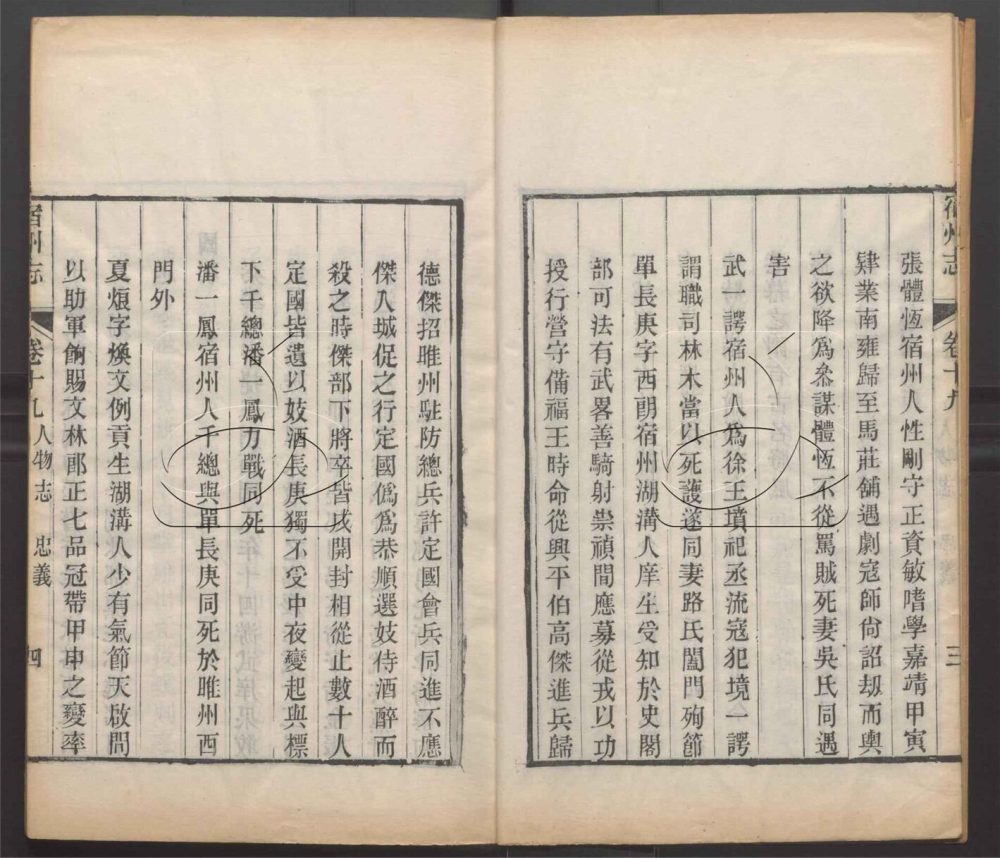 宿州志 卷十九 三
張體恆宿州人性剛守正資敏嗜學嘉靖甲寅
肄業南雍歸至馬莊舖遇劇寇師尚詔劫而輿
之欲降爲叅謀體恆不從罵賊死妻吳氏同遇
害
武一諤宿州人爲徐王墳祀丞流寇犯境一諤
謂職司林木當以死護遂同妻路氏闔門殉節
單長庚字西朙宿州湖溝人庠生受知於史閣
部可法有武畧善騎射崇禎間應募從戎以功
授行營守備福王時命從興平伯高傑進兵歸
德傑招睢州駐防總兵許定國會兵同進不應
傑入城促之行定國僞爲恭順選妓侍酒醉而
殺之時傑部下將卒皆戍開封相從止數十人
定國皆遺以妓酒長庚獨不受中夜變起與標
下千總潘一鳳力戰同死
潘一鳳宿州人千總與單長庚同死於睢州西
門外
夏煾字煥文例貢生湖溝人少有氣節天啟間
以助軍餉賜文林郎正七品冠帶甲申之變率
宿州志 卷十九人物志 忠義 四